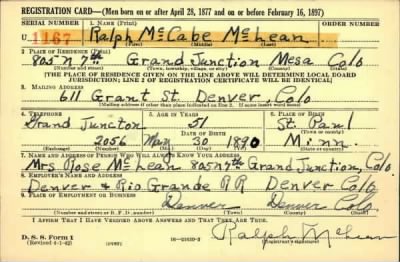 REGISTRATION CARD—(Men born on or after April 28, 1877 and on or before February 16, 1897)
SERIAL NUMBER 1. NAME (Print) ORDER NUMBER
U 1167 Ralph McCabe McLean
(First) (Middle) (Last)
2. PLACE OF RESIDENCE (Print)
805 N 7th Grand Junction Mesa Colo
(Number and street) (Town, township, village, or city) (County) (State)
[THE PLACE OF RESIDENCE GIVEN ON THE LINE ABOVE WILL DETERMINE LOCAL BOARD
JURISDICTION; LINE 2 OF REGISTRATION CERTIFICATE WILL BE IDENTICAL]
3. MAILING ADDRESS
611 Grant St. Denver Colo
[Mailing address if other than place indicated on line 2. If same insert word same]
4. TELEPHONE 5. AGE IN YEARS 6. PLACE OF BIRTH
Grand Juncton 51 St. Paul
DATE OF BIRTH (Town or county)
2056 30 1890 Minn.
(Exchange) (Number) (Mo.) (Day) (Yr.) (State or country)
7. NAME AND ADDRESS OF PERSON WHO WILL ALWAYS KNOW YOUR ADDRESS
Mrs Rose McLean 805 N 7th Grand Junction, Colo.
8. EMPLOYER'S NAME AND ADDRESS
Denver & Rio Grande RR Denver Colo
9. PLACE OF EMPLOYMENT OR BUSINESS
Denver Denver Colo.
(Number and street or R. F. D. number) (Town) (County) (State)
I AFFIRM THAT I HAVE VERIFIED ABOVE ANSWERS AND THAT THEY ARE TRUE.
D. S. S. Form 1
(Revised 4-1-42) (over)
Ralph McLean
(Registrant's signature)